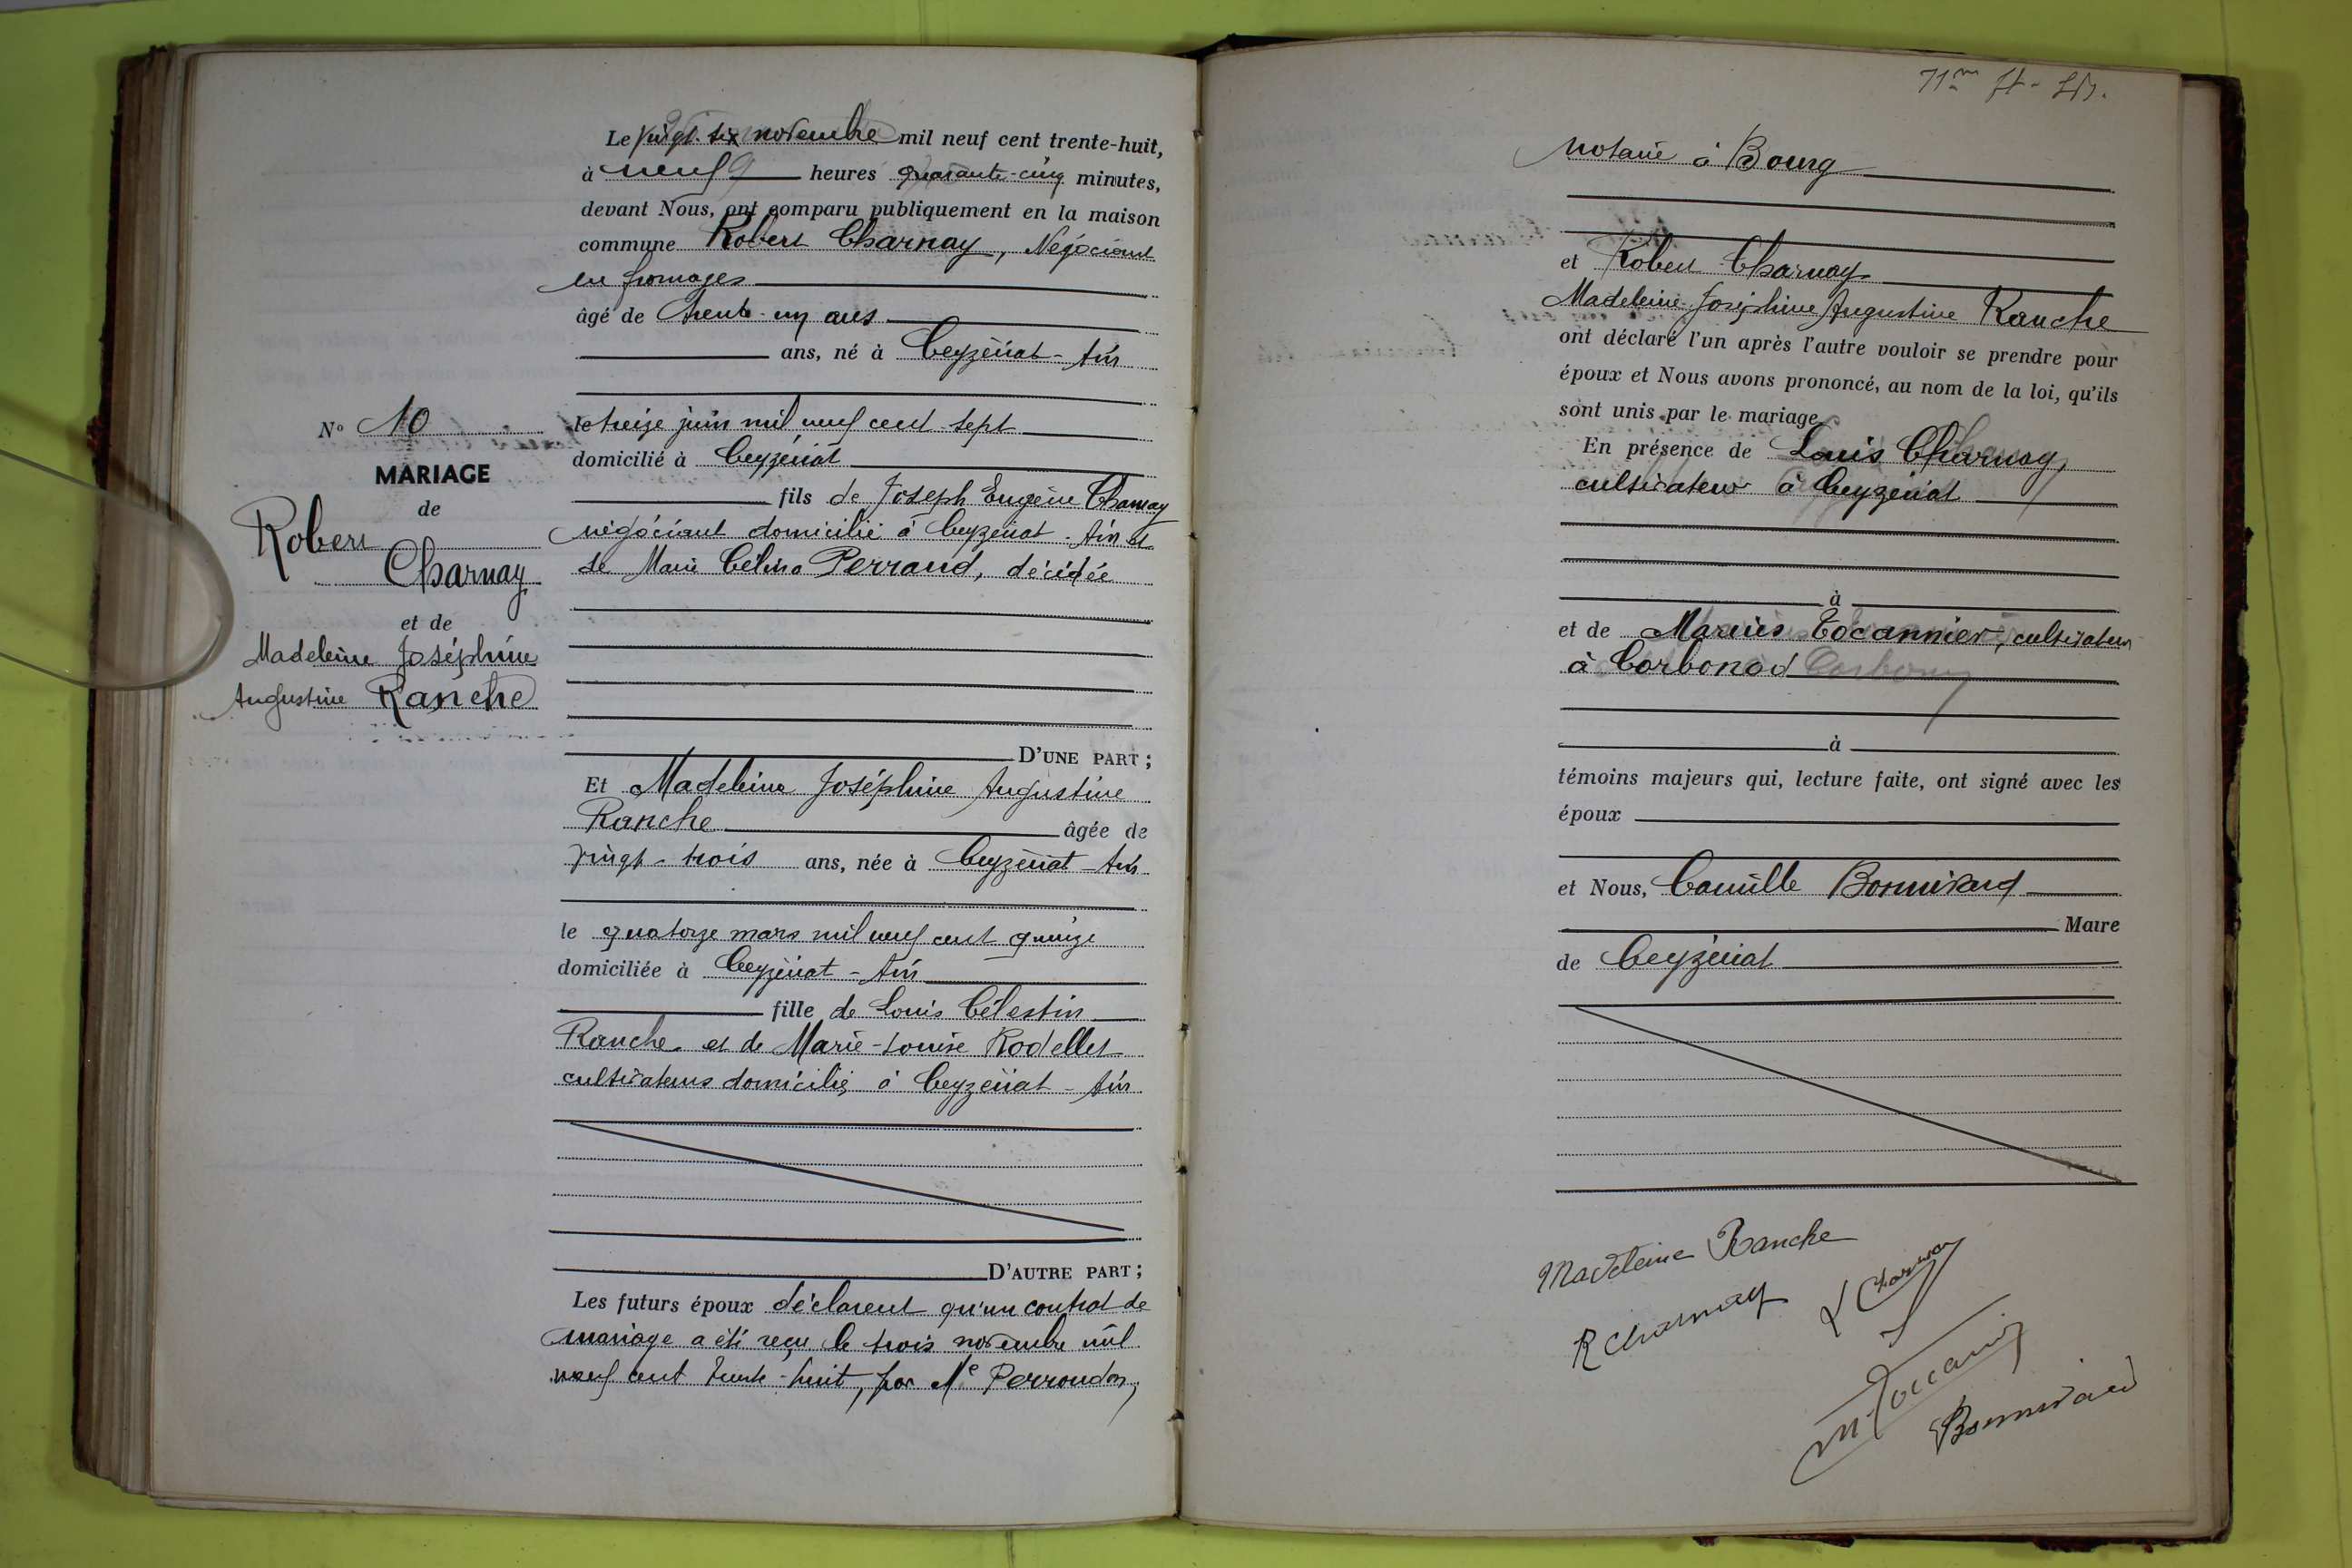 Le vingt-six novembre mil neuf cent trente-huit,
à neuf heures quarante-cinq minutes,
devant Nous, ont comparu publiquement en la maison
commune Robert Charnay, Négociant
en fromages
âgé de trente-un ans
ans, né à Ceyzériat - Ain
le treize juin mil neuf cent sept
domicilié à Ceyzériat
fils de Joseph Eugène Charnay
négociant domicilié à Ceyzériat - Ain et
de Marie Célina Perraud, décédée
D'UNE PART ;
Et Madeleine Joséphine Augustine
Ranche âgée de
vingt-trois ans, née à Ceyzériat - Ain
le quatorze mars mil neuf cent quinze
domiciliée à Ceyzériat - Ain
fille de Louis Célestin
Ranche et de Marie-Louise Rodellet
cultivateurs domiciliés à Ceyzériat - Ain
D'AUTRE PART ;
Les futurs époux déclarent qu'un contrat de
mariage a été reçu le trois novembre mil
neuf cent trente-huit, par Me Perroudon,
N° 10
MARIAGE
de
Robert
Charnay
et de
Madeleine Joséphine
Augustine Ranche
notaire à Bourg
et Robert Charnay
Madeleine Joséphine Augustine Ranche
ont déclaré l'un après l'autre vouloir se prendre pour
époux et Nous avons prononcé, au nom de la loi, qu'ils
sont unis par le mariage
En présence de Louis Charnay,
cultivateur à Ceyzériat
à
et de Marius Tocannier, cultivateur
à Corbonod
à
témoins majeurs qui, lecture faite, ont signé avec les
époux
et Nous, Camille Bonnivard
Maire
de Ceyzériat
Madeleine Ranche
R Charnay
L Charnay
Bonnivard